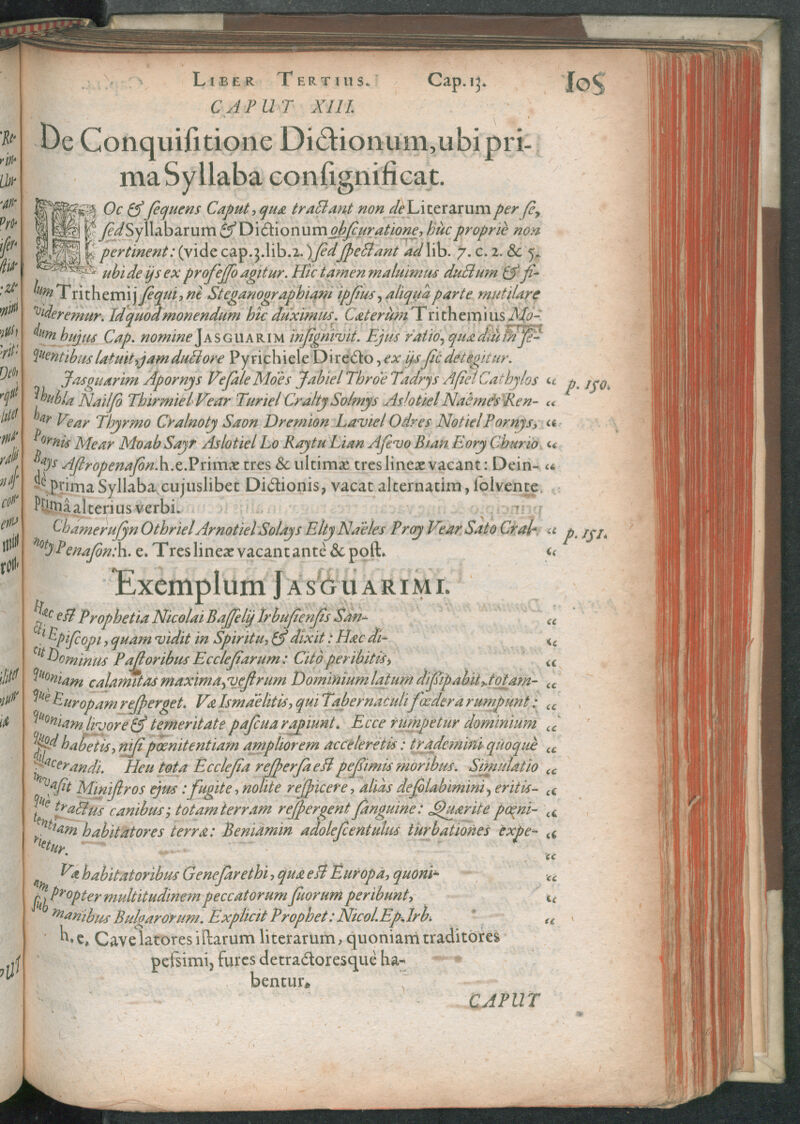 LIBER TERTIUS. Cap. 13. 105
CAPUT XIII.
De Conquisitione Dictionum, ubi pri-
ma Syllaba consignificat.
HOc & sequens Caput, quæ tractant non de Literarum per se,
sed Syllabarum & Dictionum obscuratione, hùc propriè non
pertinent: (vide cap. 3. lib. 2.) sed spectant ad lib. 7. c. 2. & 5.
ubi de ijs ex professo agitur. Hîc tamen maluimus ductum & fi-
lum Trithemij sequi, nè Steganographiam ipsius, aliquâ parte mutilare
videremur. Id quod monendum hîc duximus. Cæterùm Trithemius Mo-
dum hujus Cap. nomine JASGUARIM insignivit. Ejus ratio, quæ diu in se-
quentibus latuit, jam ductore Pyrichiele Directo, ex ijs sic detegitur.
Jasguarim Apornys Vesale Moës Jabiel Throë Tadrys Asiel Cathylos “ p. 150.
Thubla Nailso Thirmiel Vear Turiel Cralty Solmys Aslotiel Naëmes Ren- “
har Vear Thyrmo Cralnoty Saon Dremion Laviel Odres Notiel Pornys, “
Pornis Mear Moab Sayr Aslotiel Lo Raytu Lian Asevo Bian Eory Churio “
Bays Astropenason. h. e. Primæ tres & ultimæ tres lineæ vacant: Dein- “
dè prima Syllaba cujuslibet Dictionis, vacat alternatim, solvente
primâ alterius verbi.
Chamerusyn Othriel Arnotiel Solays Elty Naëles Proy Vear Sato Cral- “ p. 151.
noty Penason: h. e. Tres lineæ vacant antè & post. “
Exemplum JASGUARIMI.
Hæc est Prophetia Nicolai Basselij Irbusiensis San- “
cti Episcopi, quam vidit in Spiritu, & dixit: Hæc di- “
cit Dominus Pastoribus Ecclesiarum: Citò peribitis, “
quoniam calamitas maxima, vestrum Dominium latum dissipabit, totam- “
que Europam resperget. Væ Ismaëlitis, qui Tabernaculi fœdera rumpunt: “
quoniam livore & temeritate pascua rapiunt. Ecce rumpetur dominium “
quod habetis, nisi pœnitentiam ampliorem acceleretis: trademini quoquè “
dilacerandi. Heu tota Ecclesia respersa est pessimis moribus. Simulatio “
invasit Ministros ejus: fugite, nolite respicere, aliàs desolabimini, eritis- “
que tractus canibus; totam terram respergent sanguine: Quærite pœni- “
tentiam habitatores terræ: Beniamin adolescentulus turbationes expe- “
rietur. “
Væ habitatoribus Genesarethi, quæ est Europa, quoni- “
am propter multitudinem peccatorum suorum peribunt, “
sub manibus Bulgarorum. Explicit Prophet: Nicol. Ep. Irb. “
h. e. Cave latores istarum literarum, quoniam traditores
pessimi, fures detractoresquè ha-
bentur.
CAPUT